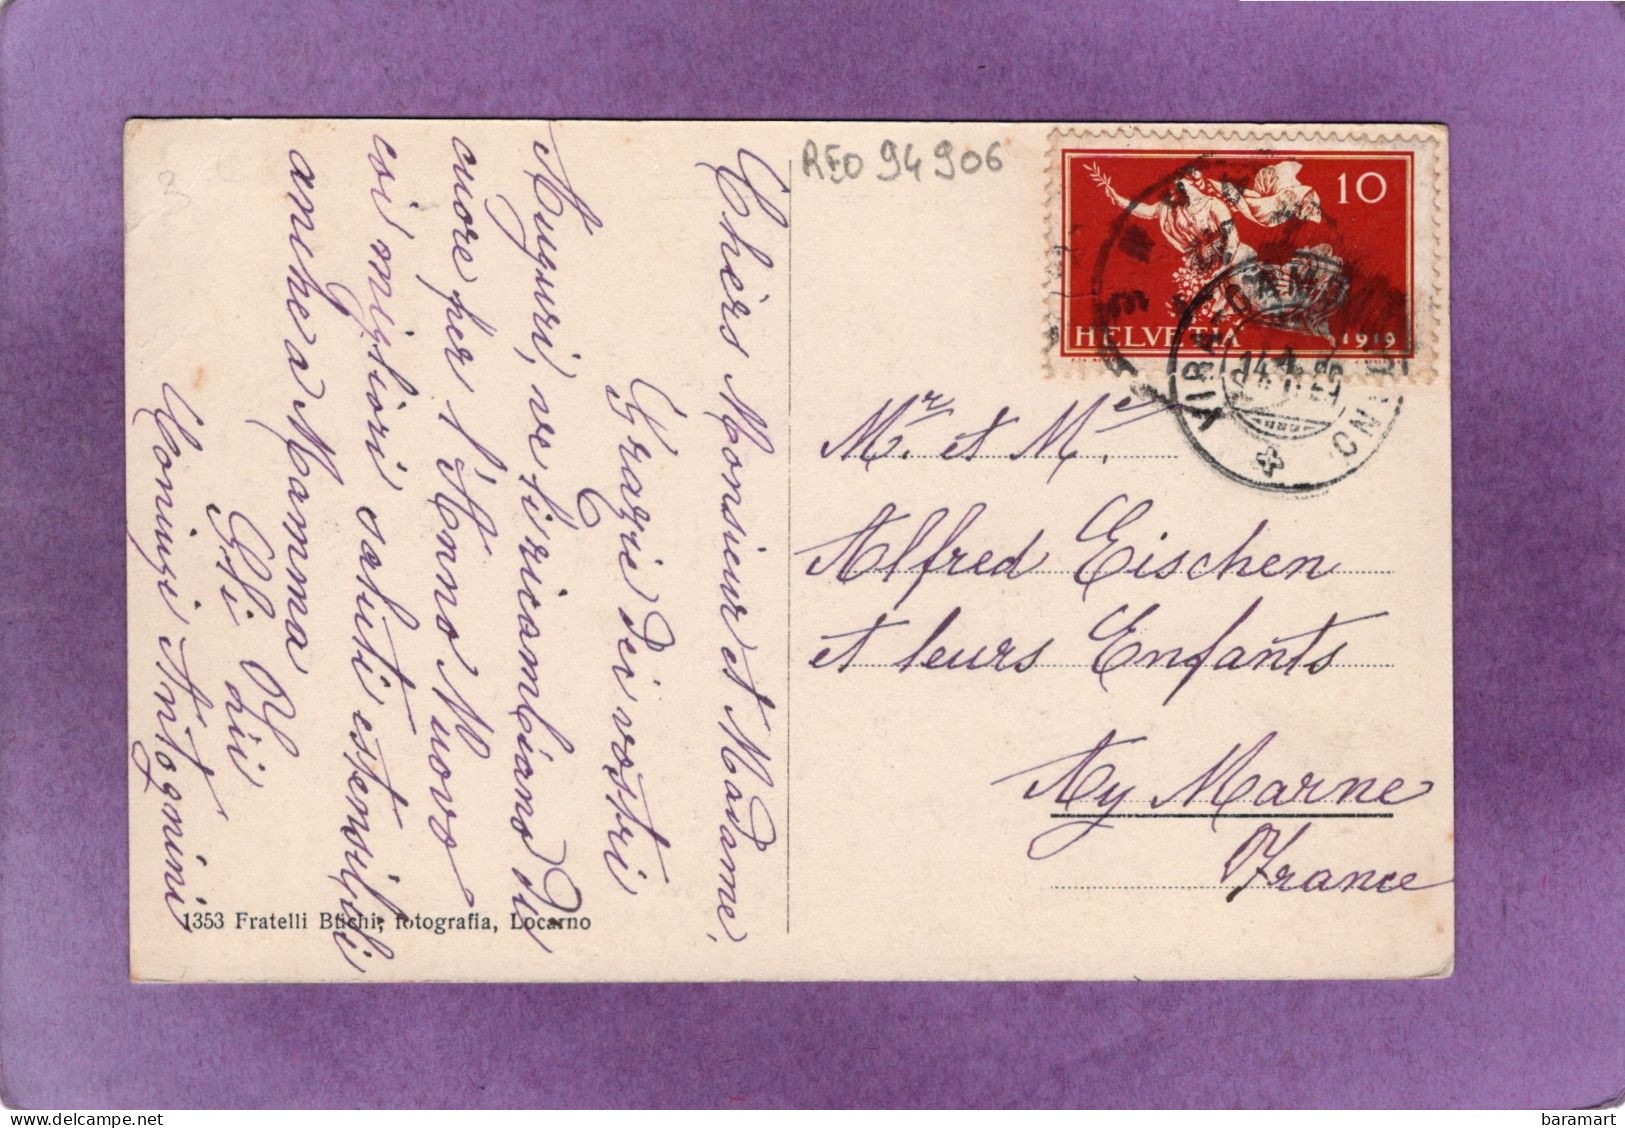 REO 94906
10
HELVETIA
1919
Chèrs Monsieur et Madame,
Grazie dei vostri
Auguri, ve li ricambiamo di
cuore per l'Anno Nuovo
coi migliori saluti estensibili
anche a Mamma
Gli Zii
Domingi Antognini
Mr. et Me.
Alfred Eischen
et leurs Enfants
Ay Marne
France
1353 Fratelli Büchi, fotografia, Locarno
baramart